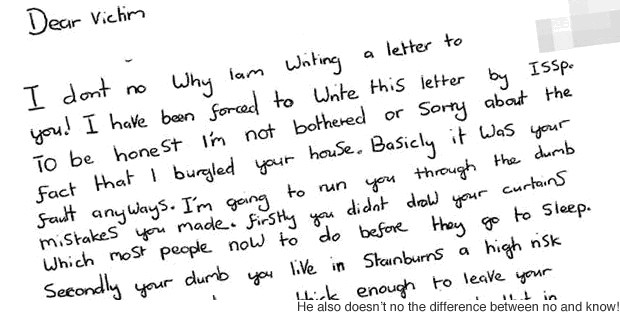 Dear Victim
I dont no Why Iam Writing a letter to
you! I have been forced to Write this letter by ISSP.
To be honest I'm not bothered or Sorry about the
fact that I burgled your house. Basicly it Was your
fault anyways. I'm going to run you through the dumb
mistakes you made. firstly you didnt draw your curtains
Which most people now to do before they go to Sleep.
Secondly your dumb you live in Stainburns a high risk
thick enough to leave your
that in
He also doesn't no the difference between no and know!